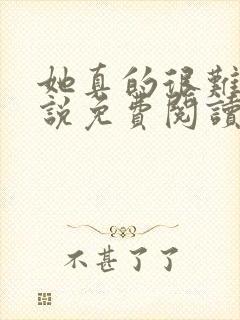 她真的很難
說免費閱讀
不甚了了